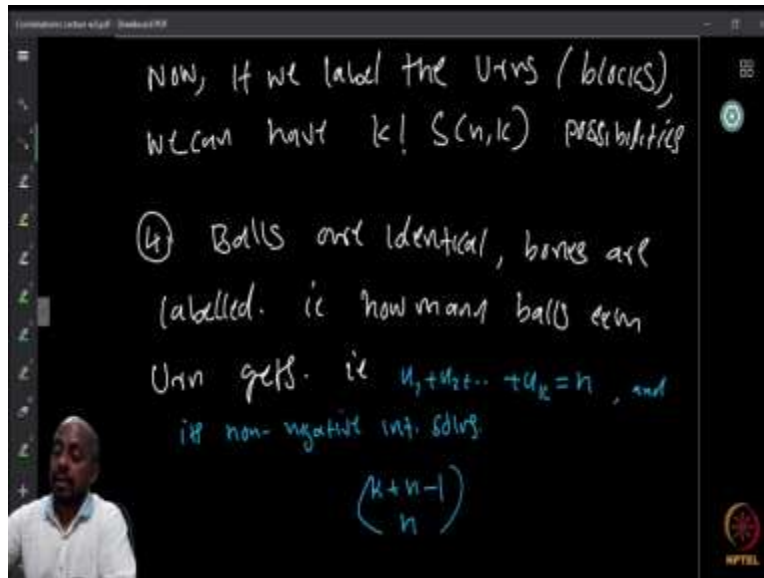 Now, if we label the Urns (blocks),
we can have k! S(n,k) possibilities
④ Balls are identical, boxes are
labelled. ie how many balls each
Urn gets. ie u₁+u₂+.. +uₖ=n , and
its non-negative int. solns.
(k+n-1
n)
NPTEL